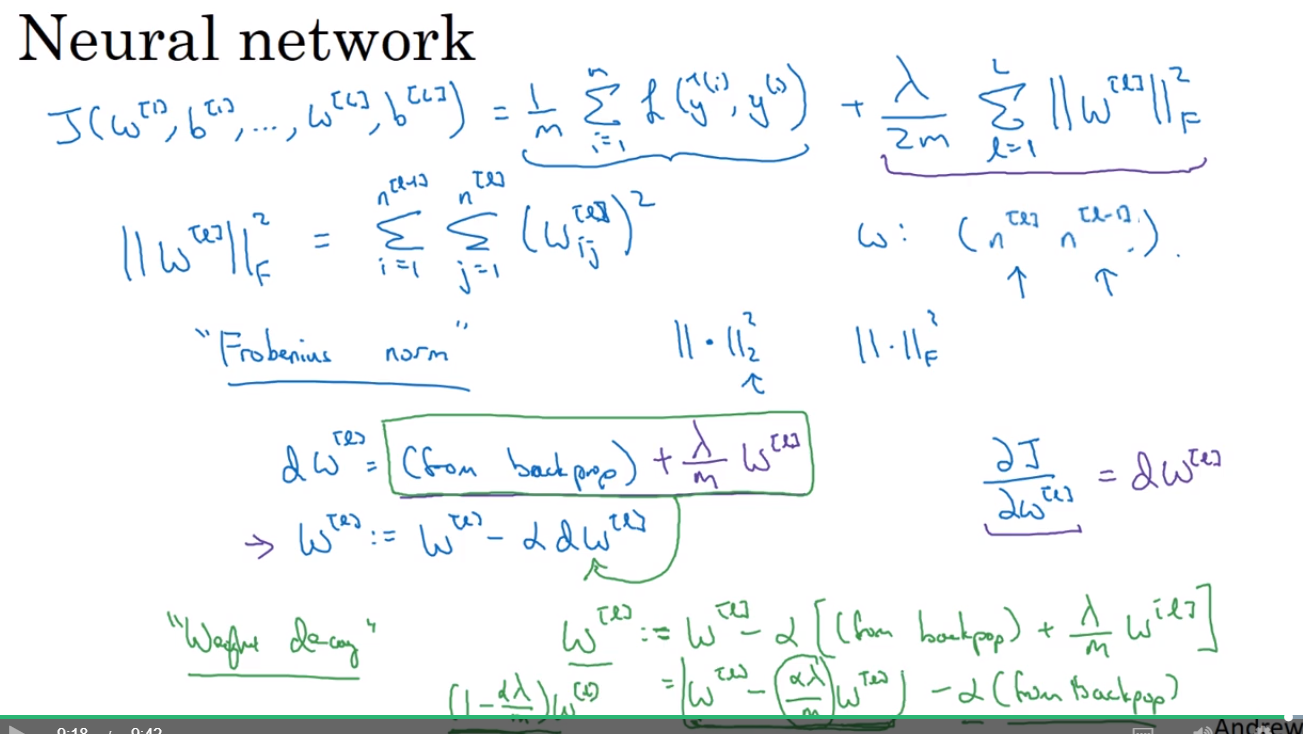 Neural network
J(w^[1], b^[1], ..., w^[L], b^[L]) = 1/m Σ_{i=1}^{m} L(ŷ^(i), y^(i)) + λ/2m Σ_{l=1}^{L} ||w^[l]||_F^2
||w^[l]||_F^2 = Σ_{i=1}^{n^[l-1]} Σ_{j=1}^{n^[l]} (w_ij^[l])^2 w: (n^[l] n^[l-1]).
"Frobenius norm" ||·||_2^2 ||·||_F^2
dw^[l] = (from backprop) + λ/m w^[l] ∂J/∂w^[l] = dw^[l]
→ w^[l] := w^[l] - α dw^[l]
"Weight decay" w^[l] := w^[l] - α [(from backpop) + λ/m w^[l]]
(1 - αλ/m) w^[l] = w^[l] - αλ/m w^[l] - α (from backpop)
9:18 / 9:42 Andrew